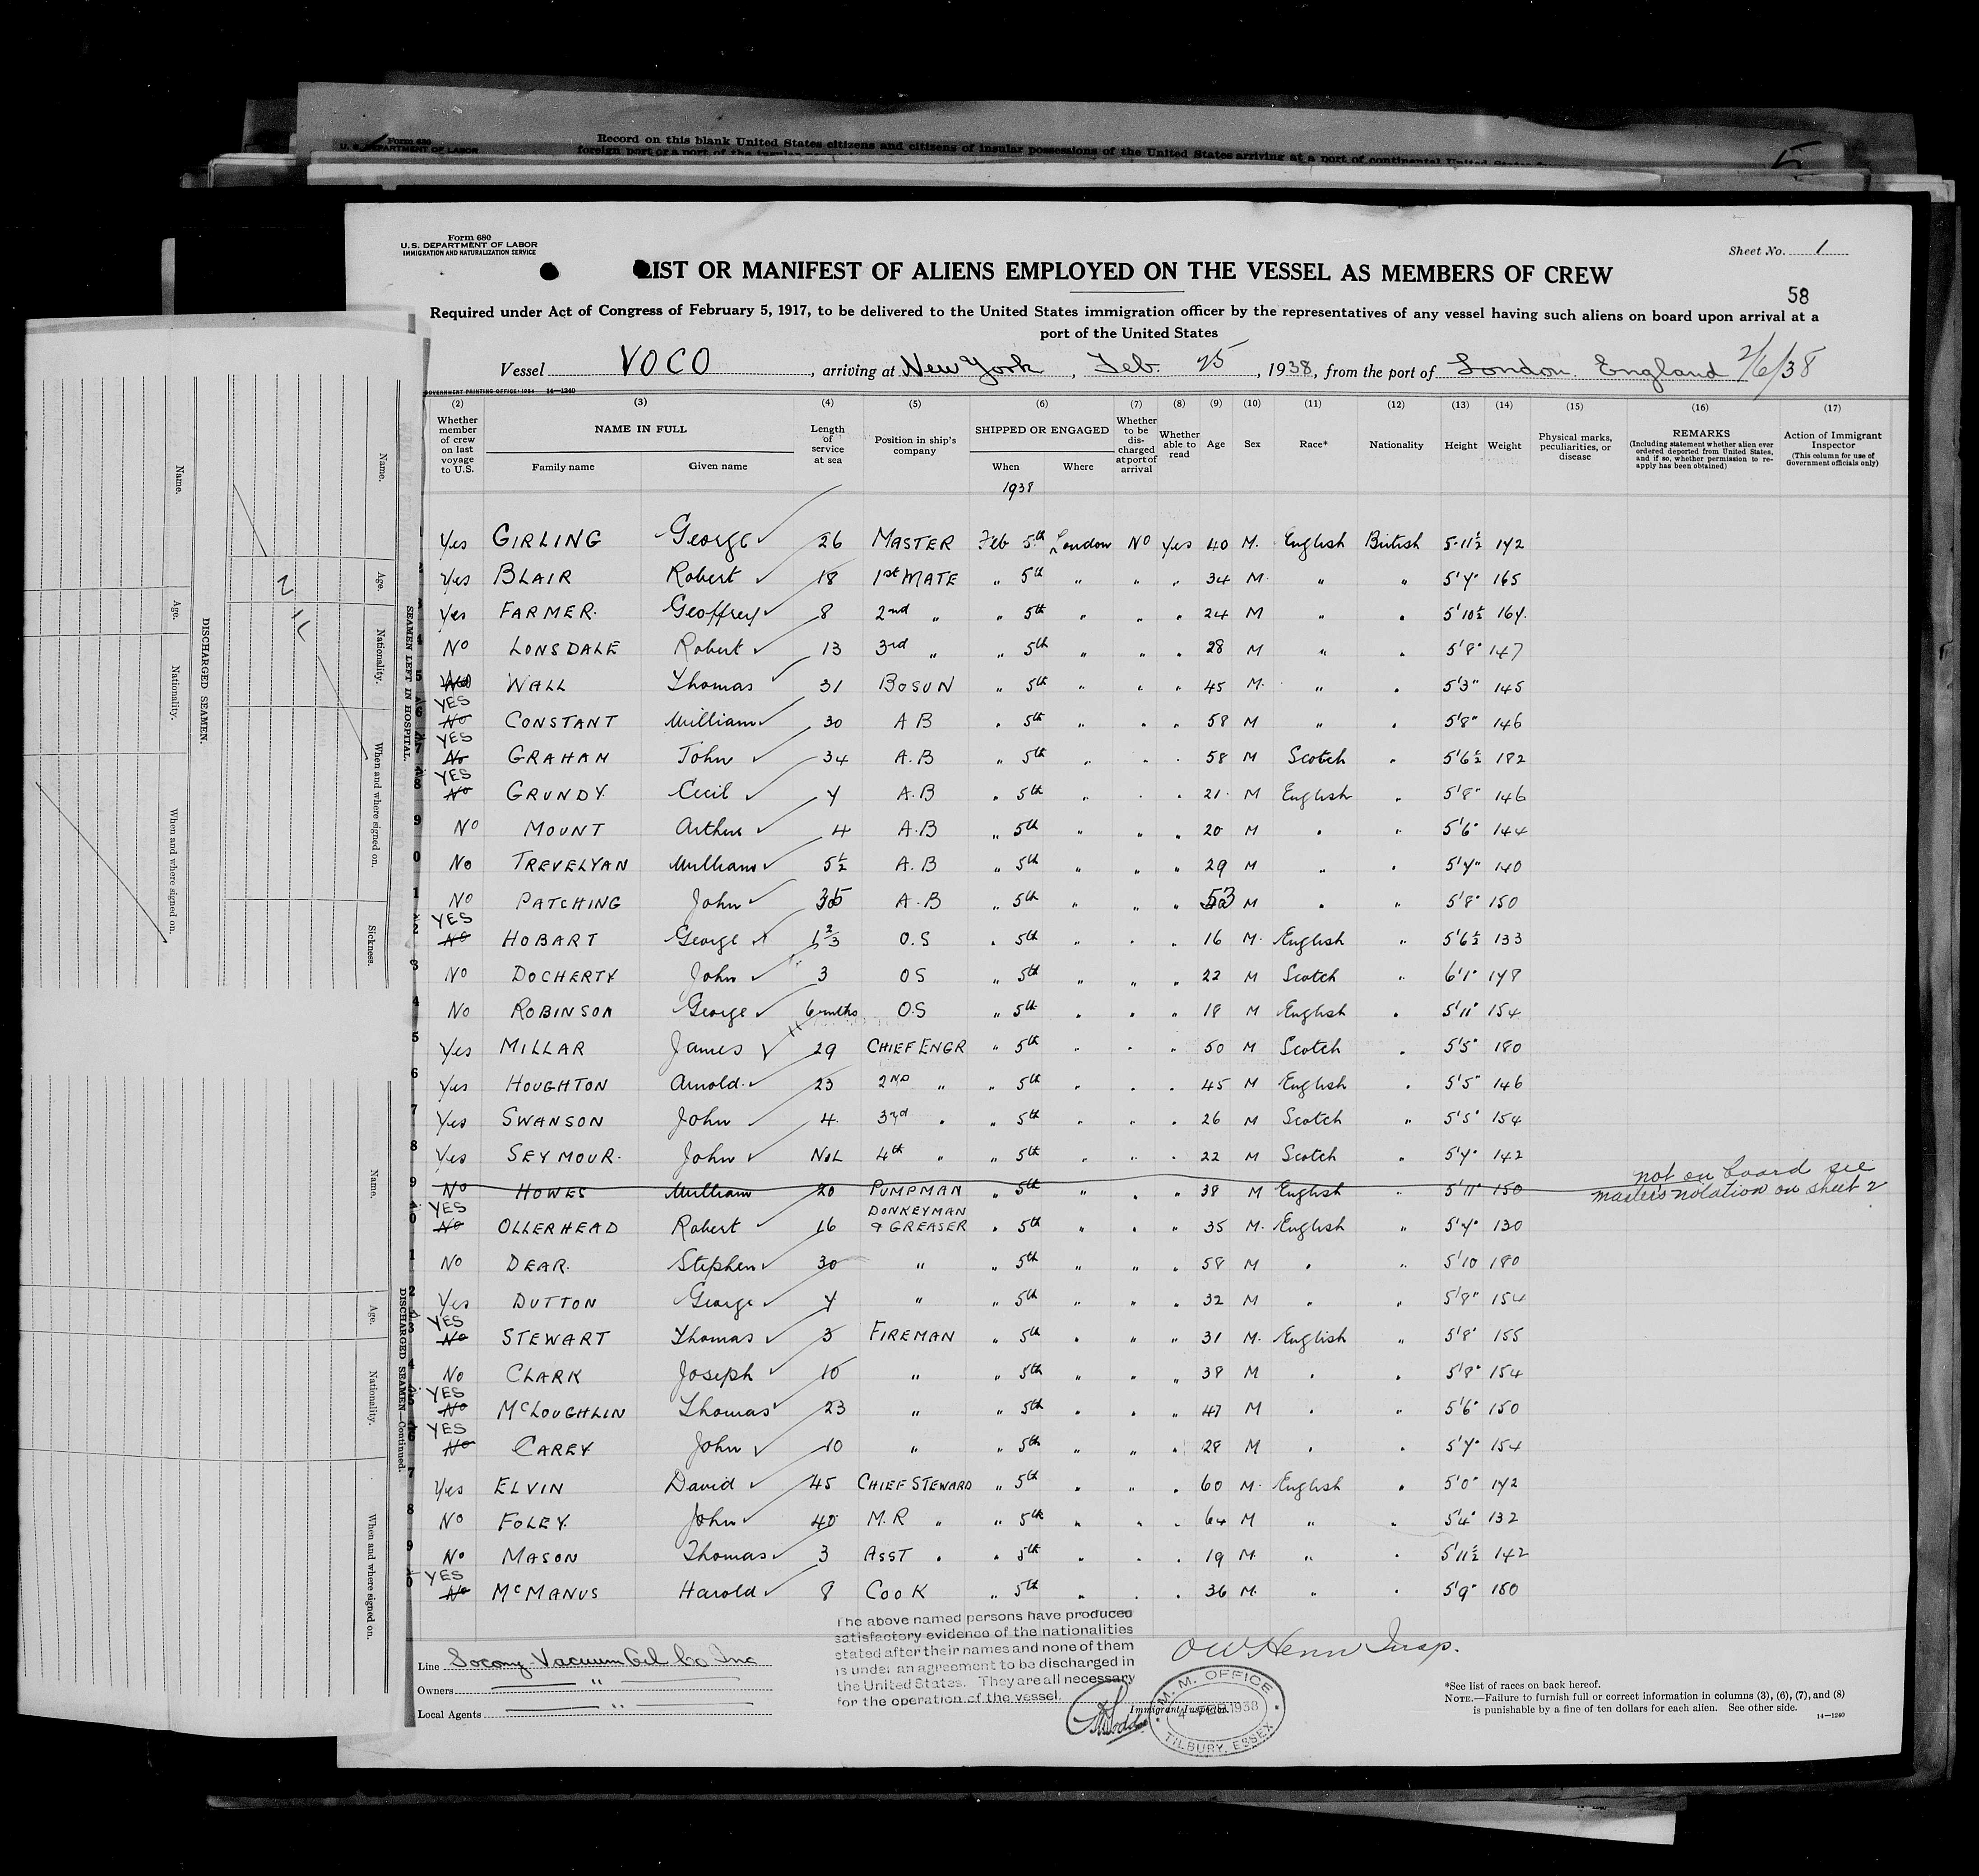 Form 680
U. S. DEPARTMENT OF LABOR
Record on this blank United States citizens and citizens of insular possessions of the United States arriving at a port of continental United States
foreign port or a port of the insular
5
Form 680
U. S. DEPARTMENT OF LABOR
IMMIGRATION AND NATURALIZATION SERVICE
Sheet No. 1
LIST OR MANIFEST OF ALIENS EMPLOYED ON THE VESSEL AS MEMBERS OF CREW
58
Required under Act of Congress of February 5, 1917, to be delivered to the United States immigration officer by the representatives of any vessel having such aliens on board upon arrival at a
port of the United States
Vessel VOCO, arriving at New York, Feb. 25, 1938, from the port of London England 2/6/38
GOVERNMENT PRINTING OFFICE: 1934 14—1240
(2) (3) (4) (5) (6) (7) (8) (9) (10) (11) (12) (13) (14) (15) (16) (17)
Whether member of crew on last voyage to U.S.
NAME IN FULL
Family name Given name
Length of service at sea
Position in ship's company
SHIPPED OR ENGAGED
When Where
Whether to be discharged at port of arrival
Whether able to read
Age
Sex
Race*
Nationality
Height
Weight
Physical marks, peculiarities, or disease
REMARKS
(Including statement whether alien ever ordered deported from United States, and if so, whether permission to reapply has been obtained)
Action of Immigrant Inspector
(This column for use of Government officials only)
1938
Yes GIRLING George 26 MASTER Feb 5th London NO Yes 40 M. English British 5-11½ 142
Yes BLAIR Robert 18 1st MATE " 5th " " " 34 M " " 5'7" 165
Yes FARMER. Geoffrey 8 2nd " " 5th " " " 24 M " " 5'10½ 164
No LONSDALE Robert 13 3rd " " 5th " " " 28 M " " 5'8" 147
5 WALL Thomas 31 BOSUN " 5th " " " 45 M. " " 5'3" 145
6 YES No CONSTANT William 30 A B " 5th " " " 58 M " " 5'8" 146
7 YES No GRAHAN John 34 A.B " 5th " " " 58 M Scotch " 5'6½ 182
8 YES No GRUNDY. Cecil 4 A.B " 5th " " " 21 M English " 5'8" 146
9 No MOUNT Arthur 4 A.B " 5th " " " 20 M " " 5'6" 144
0 No TREVELYAN William 5½ A.B " 5th " " " 29 M " " 5'7" 140
1 No PATCHING John 35 A.B " 5th " " " 53 M " " 5'8" 150
2 YES No HOBART George 1⅔ O.S " 5th " " " 16 M. English " 5'6½ 133
3 No DOCHERTY John 3 OS " 5th " " " 22 M Scotch " 6'1" 148
4 No ROBINSON George 6 mths O.S " 5th " " " 18 M English " 5'11" 154
5 Yes MILLAR James 29 CHIEF ENGR " 5th " " " 50 M Scotch " 5'5" 180
6 Yes HOUGHTON Arnold. 23 2ND " " 5th " " " 45 M English " 5'5" 146
7 Yes SWANSON John 4. 3rd " " 5th " " " 26 M Scotch " 5'5" 154
8 Yes SEYMOUR. John NIL 4th " " 5th " " " 22 M Scotch " 5'7" 142
9 No HOWES William 20 PUMPMAN " 5th " " " 38 M English " 5'11" 150 not on board see masters notation on sheet 2
0 YES No OLLERHEAD Robert 16 DONKEYMAN & GREASER " 5th " " " 35 M. English " 5'7" 130
1 No DEAR. Stephen 30 " " 5th " " " 58 M " " 5'10 180
2 Yes DUTTON George 4 " " 5th " " " 32 M " " 5'8" 154
3 YES No STEWART Thomas 3 FIREMAN " 5th " " " 31 M. English " 5'8" 155
4 No CLARK Joseph 10 " " 5th " " " 38 M " " 5'8" 154
5 YES No McLOUGHLIN Thomas 23 " " 5th " " " 47 M " " 5'6" 150
6 YES No CAREY John 10 " " 5th " " " 28 M " " 5'7" 154
7 Yes ELVIN David 45 CHIEF STEWARD " 5th " " " 60 M. English " 5'0" 142
8 No FOLEY. John 40 M.R " " 5th " " " 64 M " " 5'4" 132
9 No MASON Thomas 3 ASST " " 5th " " " 19 M " " 5'11½ 142
0 YES No McMANUS Harold 8 COOK " 5th " " " 36 M. " " 5'9" 150
The above named persons have produced
satisfactory evidence of the nationalities
stated after their names and none of them
is under an agreement to be discharged in
the United States. They are all necessary
for the operation of the vessel.
OW Henn Insp.
Immigrant Inspector.
M. M. OFFICE
4 FEB 1938
TILBURY, ESSEX
Line Socony-Vacuum Oil Co Inc
Owners "
Local Agents "
*See list of races on back hereof.
NOTE.—Failure to furnish full or correct information in columns (3), (6), (7), and (8)
is punishable by a fine of ten dollars for each alien. See other side.
14—1240
SEAMEN LEFT IN HOSPITAL.
Name. Age. Nationality. When and where signed on. Sickness.
DISCHARGED SEAMEN.
Name. Age. Nationality. When and where signed on.
DISCHARGED SEAMEN—Continued.
Name. Age. Nationality. When and where signed on.